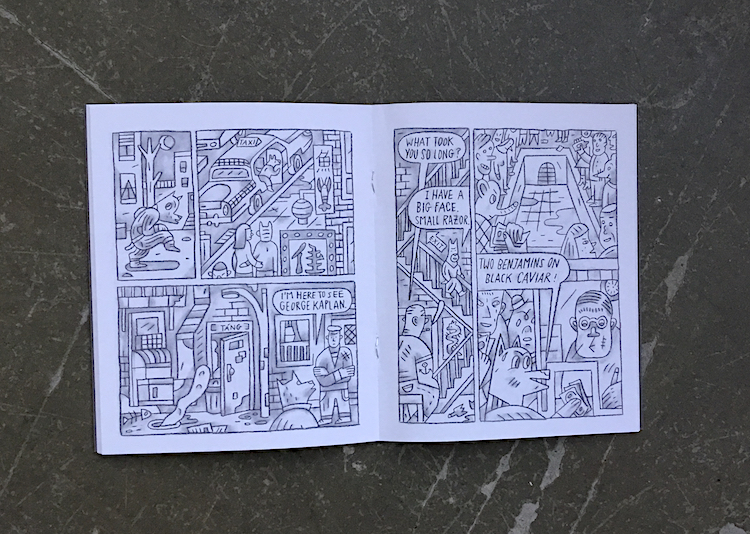 TAXI
TANG
I'M HERE TO SEE
GEORGE KAPLAN.
WHAT TOOK
YOU SO LONG?
I HAVE A
BIG FACE.
SMALL RAZOR.
EXIT
TWO BENJAMINS ON
BLACK CAVIAR!